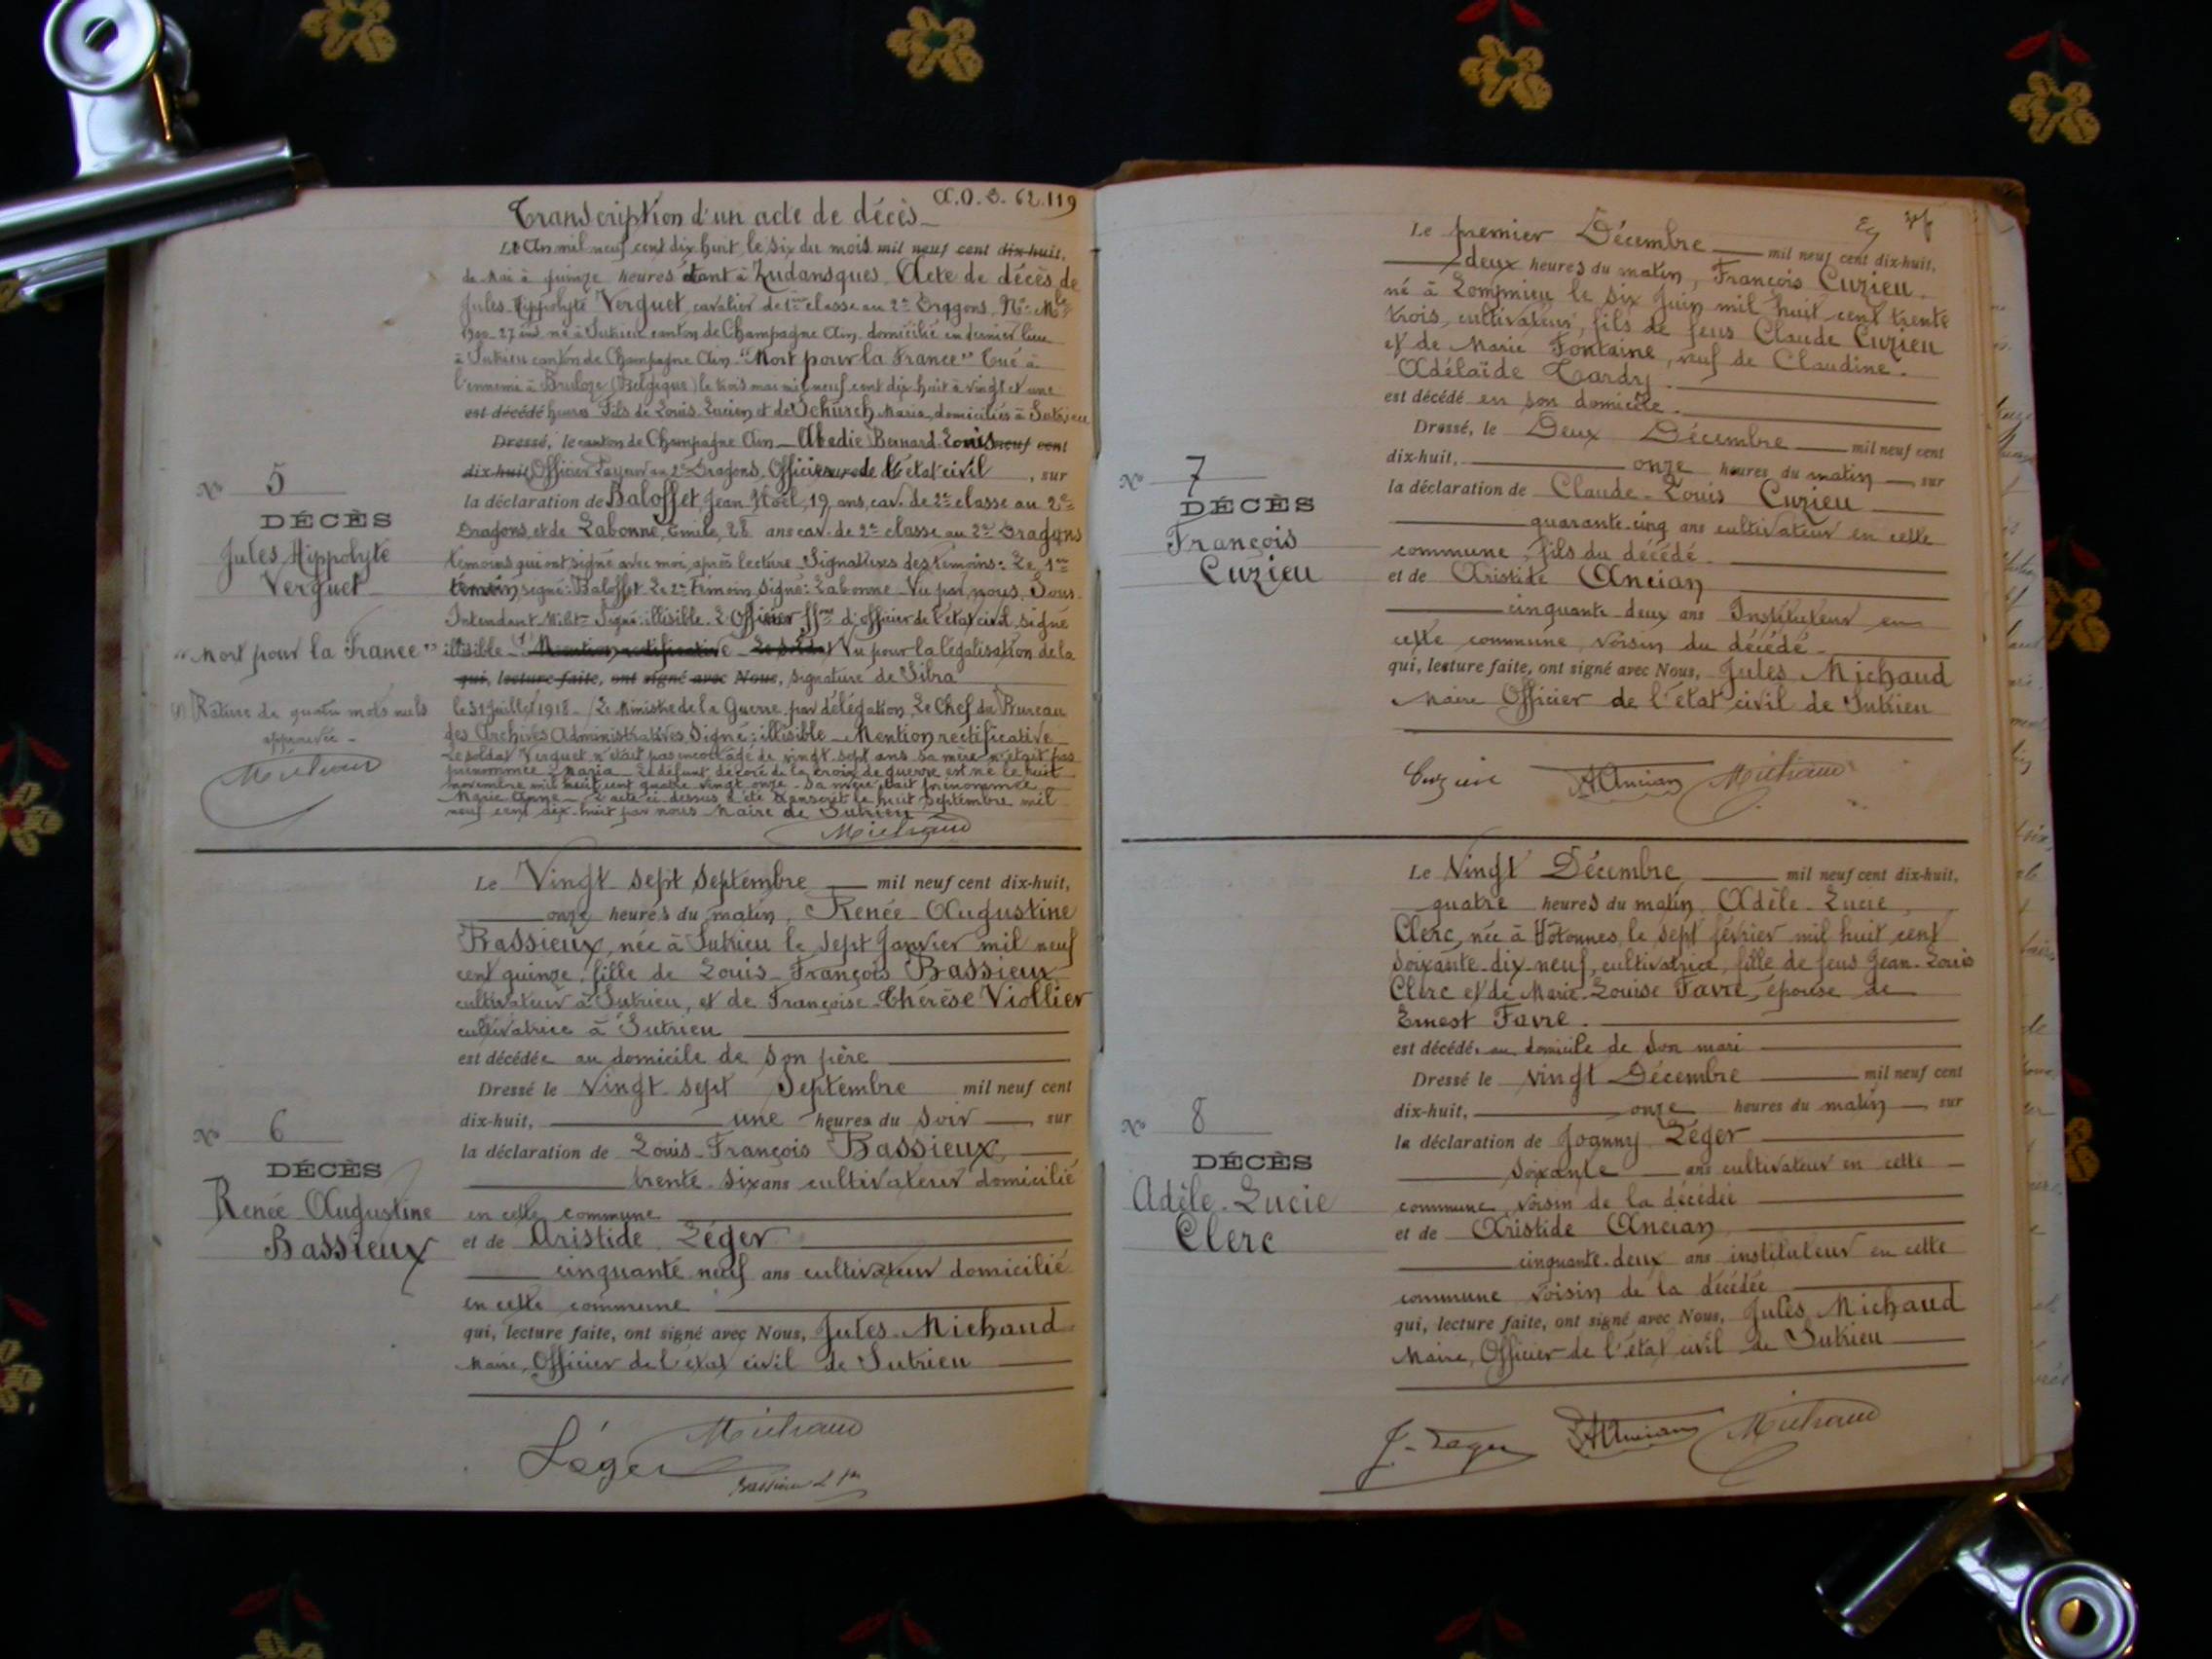 Transcription d'un acte de décès
A.O.B. 62.119
L'An mil neuf cent dix huit, le six du mois mil neuf cent dix-huit,
de Mai à quinze heures étant à Zudansques. Acte de décès de
Jules Hippolyte Verguet, cavalier de 1ère classe au 2e Dragons, No Mle
1900 27 ans né à Sutrieu canton de Champagne Ain domicilié en dernier lieu
à Sutrieu canton de Champagne Ain. "Mort pour la France" Tué à
l'ennemi à Bruloze (Belgique) le trois mai mil neuf cent dix-huit à vingt et une
est décédé heures Fils de Louis-Lucien et de Schürch Maria, domiciliés à Sutrieu
Dressé, le canton de Champagne Ain - Abadie Bernard Louis neuf cent
dix-huit, Officier Payeur au 2e Dragons, Officier de l'état civil, sur
la déclaration de Baloffet, Jean Noël, 19, ans, cav. de 2e classe au 2e
Dragons, et de Labonne, Emile, 28 ans cav. de 2e classe au 2e Dragons
témoins qui ont signé avec moi, après lecture. Signatures des témoins : Le 1er
témoin signé : Baloffet Le 2e témoin, Signé : Labonne - Vu par nous, Sous-
Intendant Milit Signé : illisible. L'Officier ff d'officier de l'état civil signé
illisible (1) Mention rectificative - Le soldat Vu pour la légalisation de la
qui, lecture faite, ont signé avec Nous, signature de Sibra
le 31 juillet 1918 - Le Ministre de la Guerre, par délégation, Le Chef du Bureau
des Archives Administratives, Signé : illisible - Mention rectificative -
Le soldat Verguet n'était pas encore âgé de vingt-sept ans. Sa mère n'était pas
prénommée Maria - Le défunt décoré de la croix de guerre est né le huit
novembre mil huit cent quatre vingt onze - Sa mère était prénommée
Marie Anna - L'acte ci-dessus a été transcrit le huit Septembre mil
neuf cent dix-huit par nous Maire de Sutrieu
Michaud
No 5
DÉCÈS
Jules Hippolyte
Verguet
"Mort pour la France"
(1) Rature de quatre mots nuls
approuvée -
Michaud
Le Vingt sept Septembre mil neuf cent dix-huit,
onze heures du matin, Renée-Augustine
Bassieux, née à Sutrieu le sept Janvier mil neuf
cent quinze, fille de Louis-François Bassieux
cultivateur à Sutrieu, et de Françoise-Thérèse Viollier
cultivatrice à Sutrieu
est décédée au domicile de son père
Dressé le Vingt sept Septembre mil neuf cent
dix-huit, une heures du soir, sur
la déclaration de Louis-François Bassieux
trente-six ans cultivateur domicilié
en cette commune
et de Aristide Léger
cinquante neuf ans cultivateur domicilié
en cette commune
qui, lecture faite, ont signé avec Nous, Jules Michaud
Maire, Officier de l'état civil de Sutrieu
No 6
DÉCÈS
Renée Augustine
Bassieux
Léger Michaud
Bassieux L
Le premier Décembre mil neuf cent dix-huit,
deux heures du matin, François Cuzieu
né à Lompnieu le six Juin mil huit cent trente
trois, cultivateur, fils de feus Claude Cuzieu
et de Marie Fontaine, veuf de Claudine
Adélaïde Tardy
est décédé en son domicile.
Dressé, le Deux Décembre mil neuf cent
dix-huit, onze heures du matin, sur
la déclaration de Claude-Louis Cuzieu
quarante-cinq ans cultivateur en cette
commune, fils du décédé
et de Aristide Ancian
cinquante deux ans Instituteur en
cette commune voisin du décédé
qui, lecture faite, ont signé avec Nous, Jules Michaud
Maire Officier de l'état civil de Sutrieu
Cuzieu Ancian Michaud
No 7
DÉCÈS
François
Cuzieu
Le Vingt Décembre mil neuf cent dix-huit,
quatre heures du matin, Adèle-Lucie
Clerc, née à Hotonnes, le sept février mil huit cent
soixante-dix-neuf, cultivatrice, fille de feus Jean-Louis
Clerc et de Marie-Louise Favre, épouse de
Ernest Favre.
est décédée au domicile de son mari
Dressé le vingt Décembre mil neuf cent
dix-huit, onze heures du matin, sur
la déclaration de Joanny Léger
soixante ans cultivateur en cette
commune voisin de la décédée
et de Aristide Ancian
cinquante-deux ans instituteur en cette
commune voisin de la décédée
qui, lecture faite, ont signé avec Nous, Jules Michaud
Maire, Officier de l'état civil de Sutrieu
No 8
DÉCÈS
Adèle-Lucie
Clerc
J. Leger Ancian Michaud